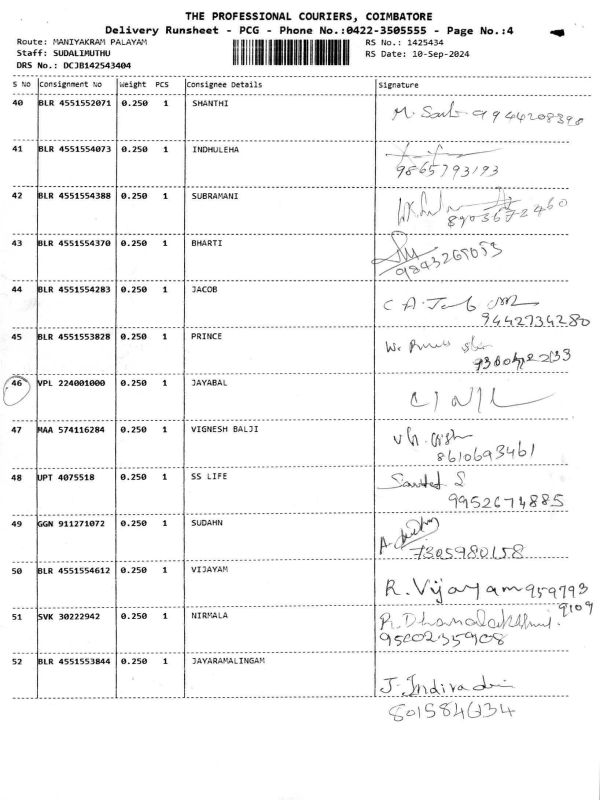 THE PROFESSIONAL COURIERS, COIMBATORE
Delivery Runsheet - PCG - Phone No.:0422-3505555 - Page No.:4
Route: MANIYAKRAM PALAYAM RS No.: 1425434
Staff: SUDALIMUTHU RS Date: 10-Sep-2024
DRS No.: DCJB142543404
S No Consignment No Weight PCS Consignee Details Signature
40 BLR 4551552071 0.250 1 SHANTHI
M. 9944208390
41 BLR 4551554073 0.250 1 INDHULEHA
9865793193
42 BLR 4551554388 0.250 1 SUBRAMANI
8903672460
43 BLR 4551554370 0.250 1 BHARTI
9843265053
44 BLR 4551554283 0.250 1 JACOB
C A. Jacob
9442734280
45 BLR 4551553828 0.250 1 PRINCE
46 VPL 224001000 0.250 1 JAYABAL
47 MAA 574116284 0.250 1 VIGNESH BALJI
8610693461
48 UPT 4075518 0.250 1 SS LIFE
9952674885
49 GGN 911271072 0.250 1 SUDAHN
A.
7305980158
50 BLR 4551554612 0.250 1 VIJAYAM
R. Vijayam 959793
9109
51 SVK 30222942 0.250 1 NIRMALA
R. Dhanalakshmi
9500235908
52 BLR 4551553844 0.250 1 JAYARAMALINGAM
J. Indiradevi
801584634